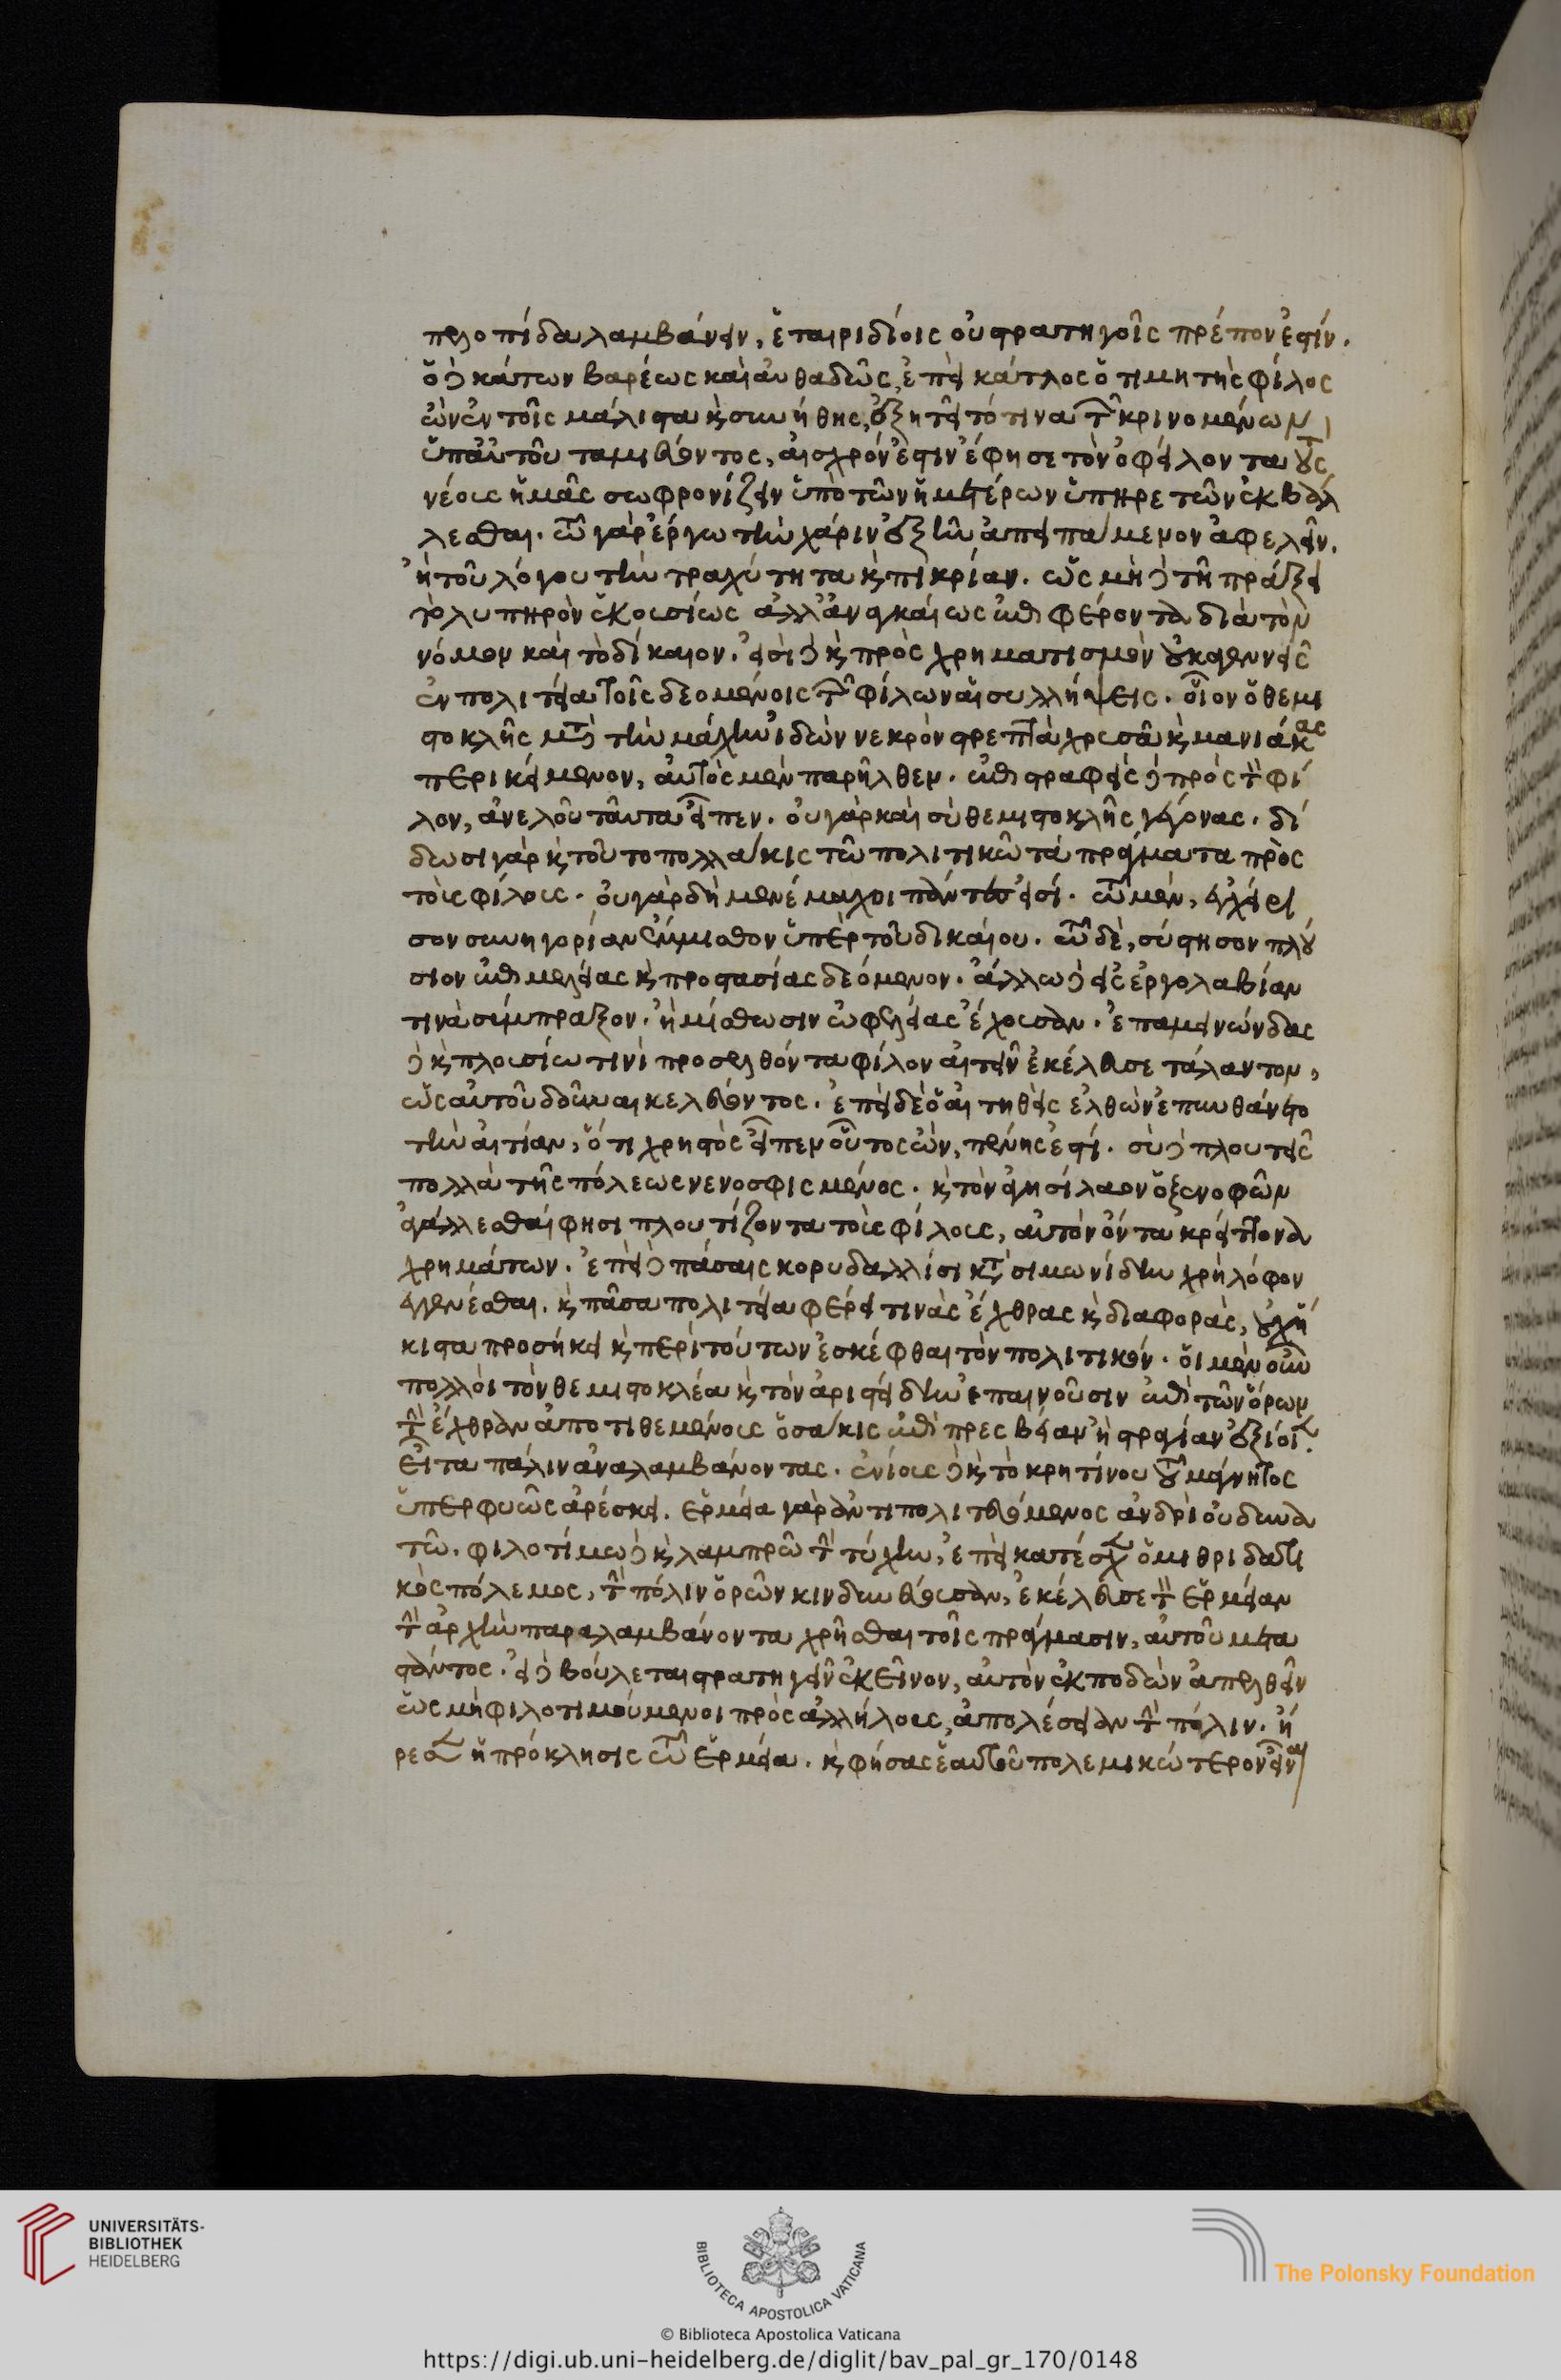 πελοπίδα λαμβάνειν, ἑταιριδίοις οὐ στρατηγοῖς πρέπον ἐστίν.
ὁ δὲ κάτων βαρέως καὶ αὐθαδῶς, ἐπεὶ κάτλος ὁ τιμητὴς φίλος
ὢν ἐν τοῖς μάλιστα καὶ συνήθης, ἐξητεῖτό τινα τῶν κρινομένων
ὑπ' αὐτοῦ ταμιεύοντος, αἰσχρόν ἐστιν ἔφησε τὸν ὀφείλοντα τοὺς
νέους ἡμᾶς σωφρονίζειν ὑπὸ τῶν ἡμετέρων ὑπηρετῶν ἐκβάλ
λεσθαι. τῷ γὰρ ἔργῳ τὴν χάριν ἐξῆν ἀπειπάμενον ἀφελεῖν.
ἢ τοῦ λόγου τὴν τραχύτητα καὶ πικρίαν. ὡς μὴ δὲ τῇ πράξει
τὸ λυπηρὸν ἑκουσίως ἀλλ' ἀναγκαίως ἐπιφέροντα διὰ τὸν
νόμον καὶ τὸ δίκαιον. εἰσὶ δὲ καὶ πρὸς χρηματισμὸν οὐκ ἀγεννεῖς
ἐν πολιτείᾳ τοῖς δεομένοις τῶν φίλων αἱ συλλήψεις. οἷον ὁ θεμι
στοκλῆς μετὰ τὴν μάχην ἰδὼν νεκρὸν στρεπτὰ χρυσᾶ καὶ μανιάκας
περικείμενον, αὐτὸς μὲν παρῆλθεν. ἐπιστραφεὶς δὲ πρὸς τὸν φί
λον, ἀνελοῦ ταῦτα εἶπεν. οὐ γὰρ καὶ σὺ θεμιστοκλῆς γέγονας. δί
δωσι γὰρ καὶ τοῦτο πολλάκις τῷ πολιτικῷ τὰ πράγματα πρὸς
τοὺς φίλους. οὐ γὰρ δὴ μενέμαχοι πάντες εἰσί. τῷ μὲν, ἐγχείρι
σον συνηγορίαν ἔμμισθον ὑπὲρ τοῦ δικαίου. τῷ δὲ, σύστησον πλού
σιον ἐπιμελείας καὶ προστασίας δεόμενον. ἄλλῳ δὲ εἰς ἐργολαβίαν
τινὰ σύμπραξον. ἢ μίσθωσιν ὠφελείας ἔχουσαν. ἐπαμεινώνδας
δὲ καὶ πλουσίῳ τινὶ προσελθόντα φίλον αἰτεῖν ἐκέλευσε τάλαντον,
ὡς αὐτοῦ δοῦναι κελεύοντος. ἐπεὶ δὲ ὁ αἰτηθεὶς ἐλθὼν ἐπυνθάνετο
τὴν αἰτίαν, ὅτι χρηστὸς εἶπεν οὗτος ὢν, πένης ἐστί. σὺ δὲ πλουτεῖς
πολλὰ τῆς πόλεως νενοσφισμένος. καὶ τὸν ἀγησίλαον ὁ ξενοφῶν
ἀγάλλεσθαί φησι πλουτίζοντα τοὺς φίλους, αὐτὸν ὄντα κρείττονα
χρημάτων. ἐπεὶ δὲ πάσαις κορυδαλλίσι κατὰ σιμωνίδην χρὴ λόφον
ἐγγενέσθαι. καὶ πᾶσα πολιτεία φέρει τινὰς ἔχθρας καὶ διαφορὰς, οὐχ ἥ
κιστα προσήκει καὶ περὶ τούτων ἐσκέφθαι τὸν πολιτικόν. οἱ μὲν οὖν
πολλοὶ τὸν θεμιστοκλέα καὶ τὸν ἀριστείδην ἐπαινοῦσιν ἐπὶ τῶν ὅρων
τὴν ἔχθραν ἀποτιθεμένους ὁσάκις ἐπὶ πρεσβείαν ἢ στρατηγίαν ἐξίοιεν.
εἶτα πάλιν ἀναλαμβάνοντας. ἐνίοις δὲ καὶ τὸ κρητίνου τοῦ μάγνητος
ὑπερφυῶς ἀρέσκει. ἑρμείᾳ γὰρ ἀντιπολιτευόμενος ἀνδρὶ οὐ δυνα
τῷ. φιλοτίμῳ δὲ καὶ λαμπρῷ τὴν τύχην, ἐπεὶ κατέσχεν ὁ μιθριδατι
κὸς πόλεμος, τὴν πόλιν ὁρῶν κινδυνεύουσαν, ἐκέλευσε τὸν ἑρμείαν
τὴν ἀρχὴν παραλαμβάνοντα χρῆσθαι τοῖς πράγμασιν, αὐτοῦ μετα
στάντος. εἰ δὲ βούλεται στρατηγεῖν ἐκεῖνον, αὐτὸν ἐκποδὼν ἀπελθεῖν
ὡς μὴ φιλοτιμούμενοι πρὸς ἀλλήλους, ἀπολέσειαν τὴν πόλιν. ἤ
ρεσεν ἡ πρόκλησις τῷ ἑρμείᾳ. καὶ φήσας ἑαυτοῦ πολεμικώτερον εἶναι
UNIVERSITÄTS-
BIBLIOTHEK
HEIDELBERG
BIBLIOTECA APOSTOLICA VATICANA
The Polonsky Foundation
© Biblioteca Apostolica Vaticana
https://digi.ub.uni-heidelberg.de/diglit/bav_pal_gr_170/0148